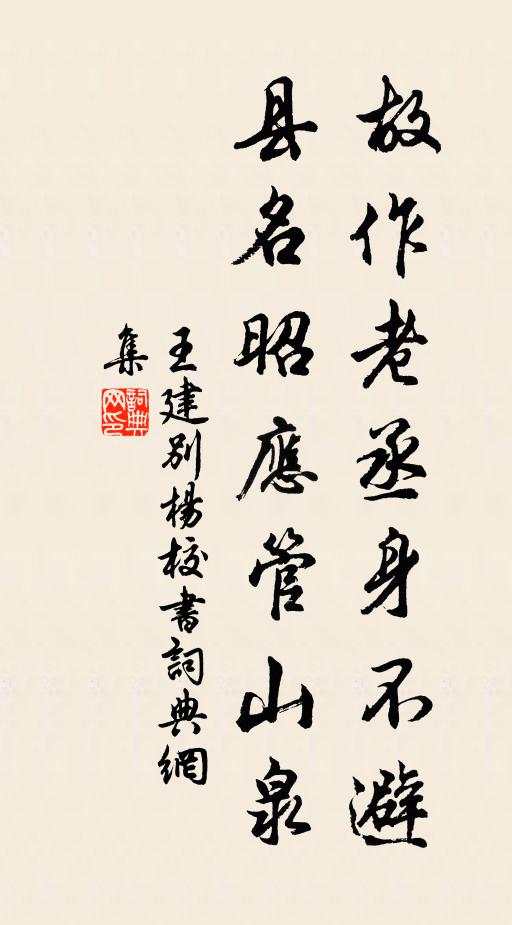 故作老丞身不避
县名昭應管山泉
王建别楊校書詞典網
集
詞典
网印